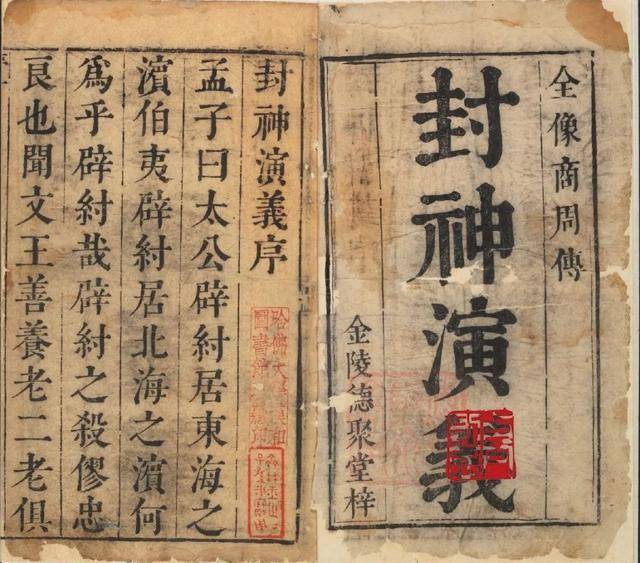 全像商周傳
封神演義
金陵德聚堂梓
封神演義序
孟子曰太公辟紂居東海之
濱伯夷辟紂居北海之濱何
為乎辟紂哉辟紂之殺僇忠
良也聞文王善養老二老俱